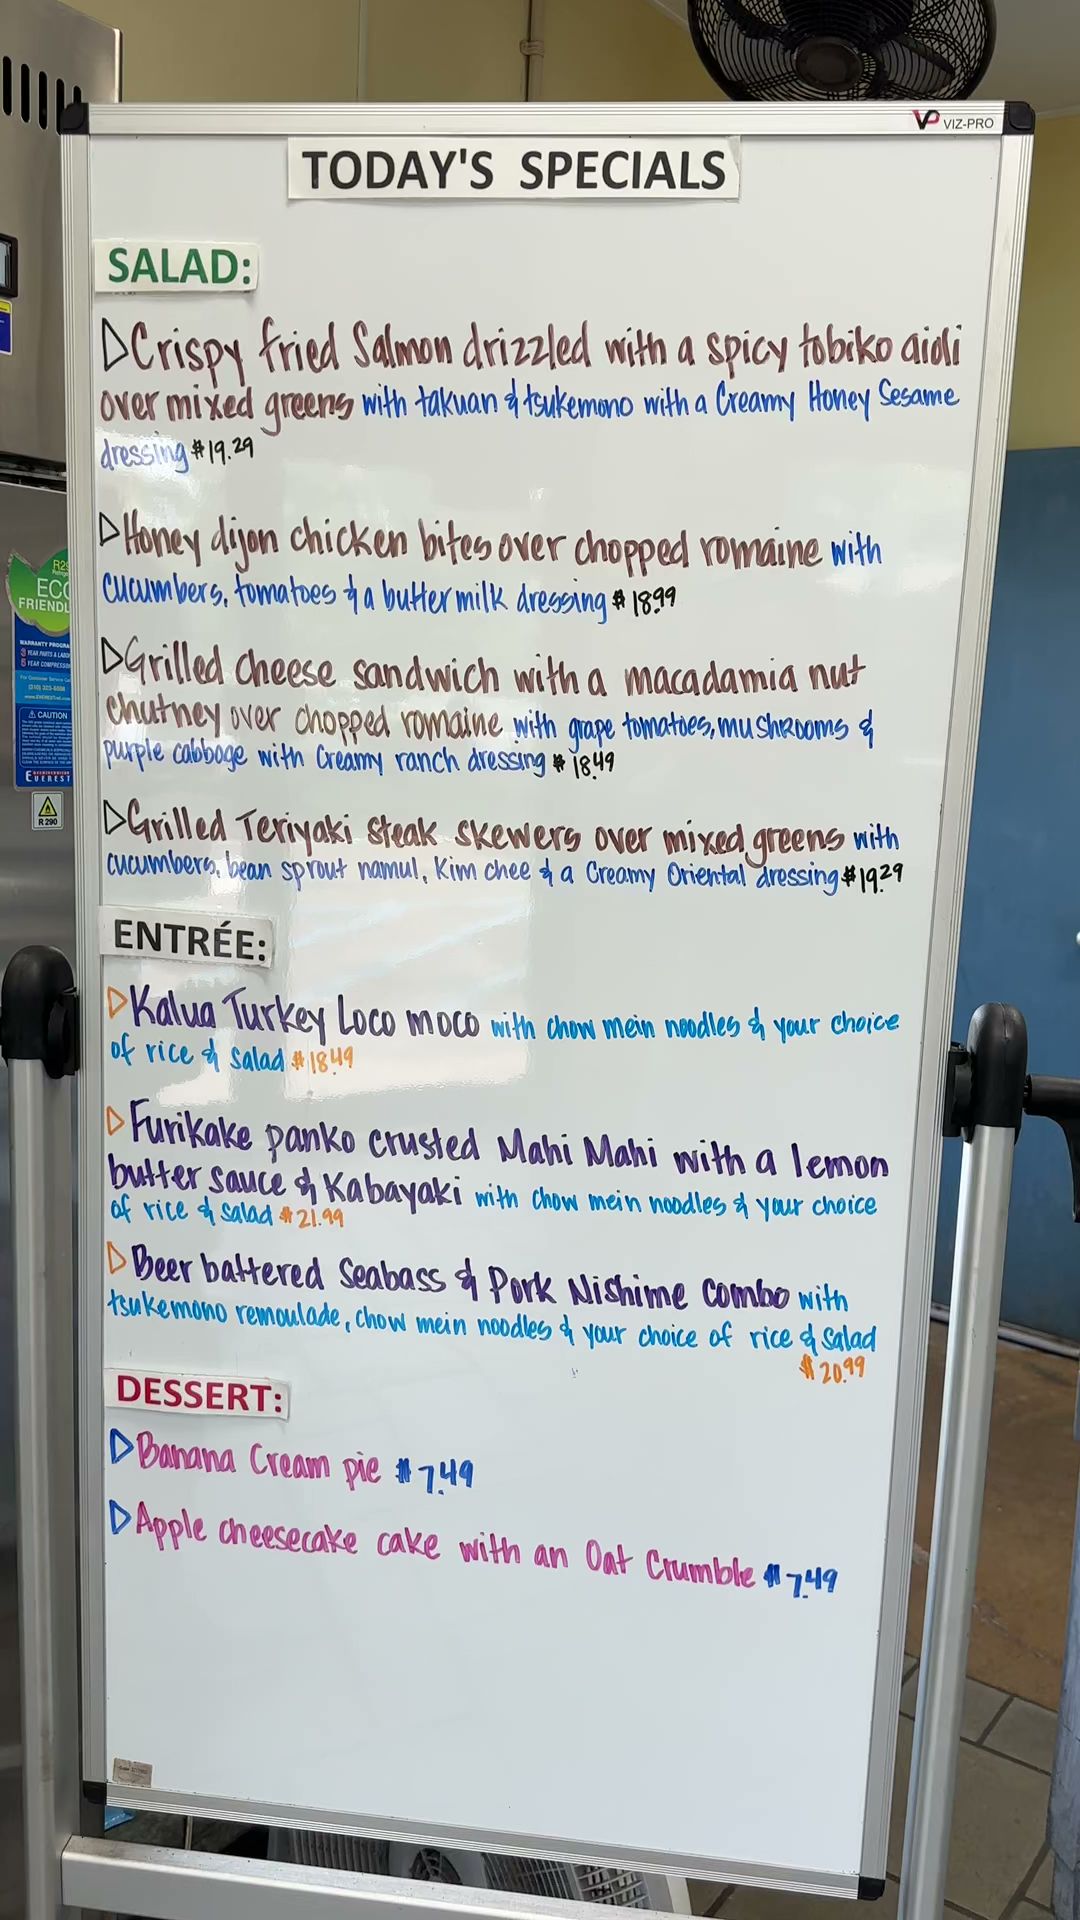 VP VIZ-PRO
TODAY'S SPECIALS
SALAD:
Crispy fried Salmon drizzled with a spicy tobiko aioli
over mixed greens with takuan & tsukemono with a Creamy Honey Sesame
dressing $19.29
Honey dijon chicken bites over chopped romaine with
cucumbers, tomatoes & a buttermilk dressing $18.99
Grilled cheese sandwich with a macadamia nut
chutney over chopped romaine with grape tomatoes, mushrooms &
purple cabbage with Creamy ranch dressing $18.49
Grilled Teriyaki steak skewers over mixed greens with
cucumbers, bean sprout namul, Kim chee & a Creamy Oriental dressing $19.29
ENTRÉE:
Kalua Turkey Loco moco with chow mein noodles & your choice
of rice & salad $18.49
Furikake panko crusted Mahi Mahi with a lemon
butter sauce & Kabayaki with chow mein noodles & your choice
of rice & salad $21.99
Beer battered Seabass & Pork Nishime combo with
tsukemono remoulade, chow mein noodles & your choice of rice & salad
$20.99
DESSERT:
Banana Cream pie $7.49
Apple cheesecake cake with an Oat Crumble $7.49
ECO
FRIENDL
WARRANTY PROGRA
CAUTION
EVEREST
R 290